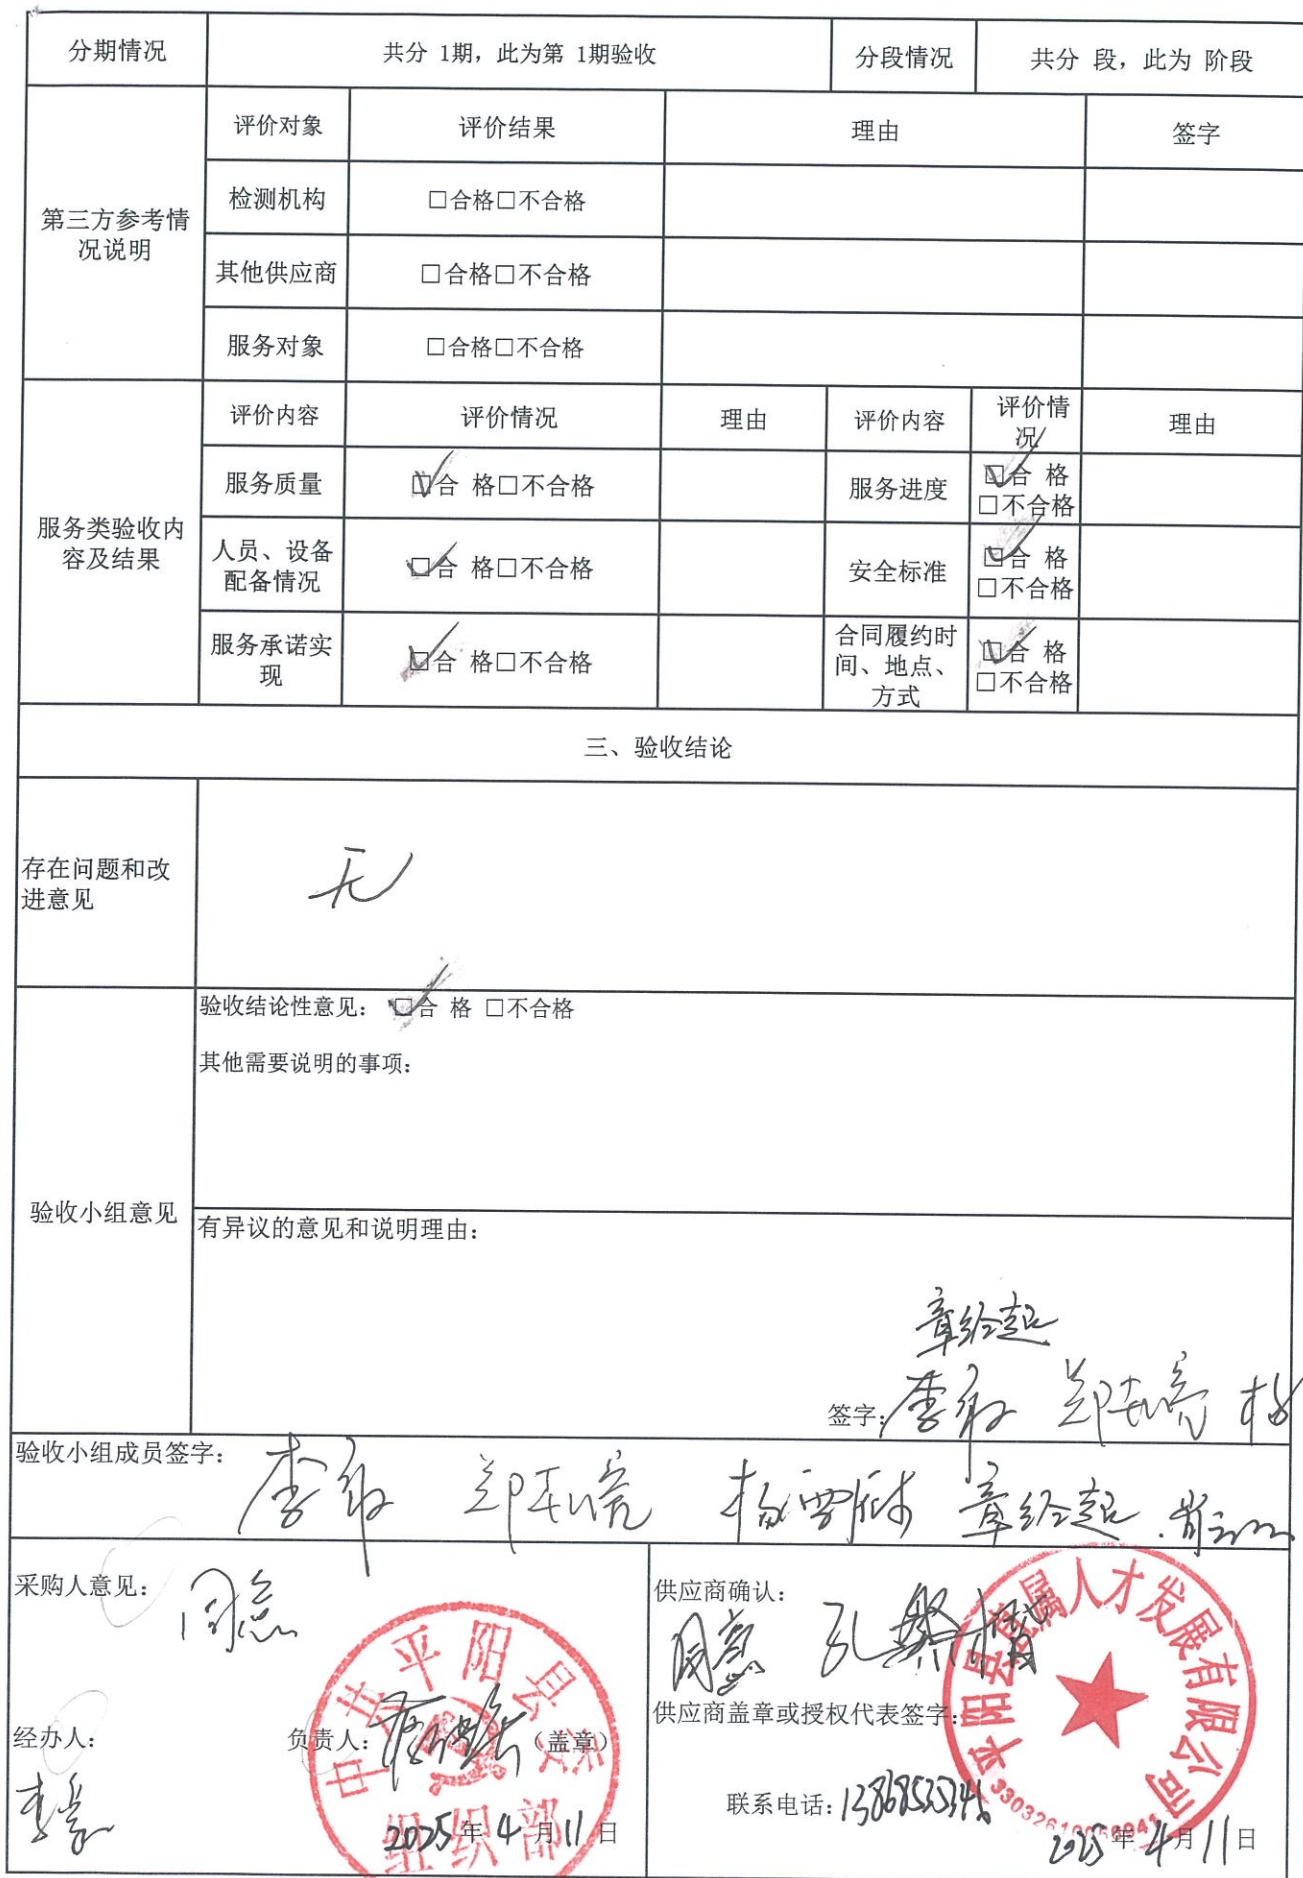 分期情况 共分 1期，此为第 1期验收 分段情况 共分 段，此为 阶段
第三方参考情况说明 评价对象 评价结果 理由 签字
检测机构 □合格□不合格
其他供应商 □合格□不合格
服务对象 □合格□不合格
服务类验收内容及结果 评价内容 评价情况 理由 评价内容 评价情况 理由
服务质量 ☑合 格□不合格 服务进度 ☑合 格□不合格
人员、设备配备情况 ☑合 格□不合格 安全标准 ☑合 格□不合格
服务承诺实现 ☑合 格□不合格 合同履约时间、地点、方式 ☑合 格□不合格
三、验收结论
存在问题和改进意见 无
验收小组意见
验收结论性意见： ☑合 格 □不合格
其他需要说明的事项：
有异议的意见和说明理由：
章经起
签字：李敏
验收小组成员签字：李敏 章经起
采购人意见：同意
经办人：
负责人： （盖章）
中共平阳县委
组织部
2025年4月11日
供应商确认：
同意 孔
供应商盖章或授权代表签字：
平阳县直属人才发展有限公司
联系电话：
2025年4月11日